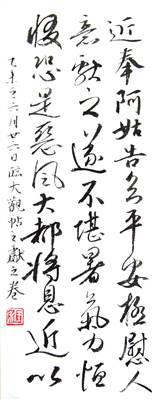 近奉阿姑告平安極慰人
意獻之遂不堪暑氣力恒
惙恐是惡風大都將息近以
乙未年六月廿六日臨大觀帖王獻之卷